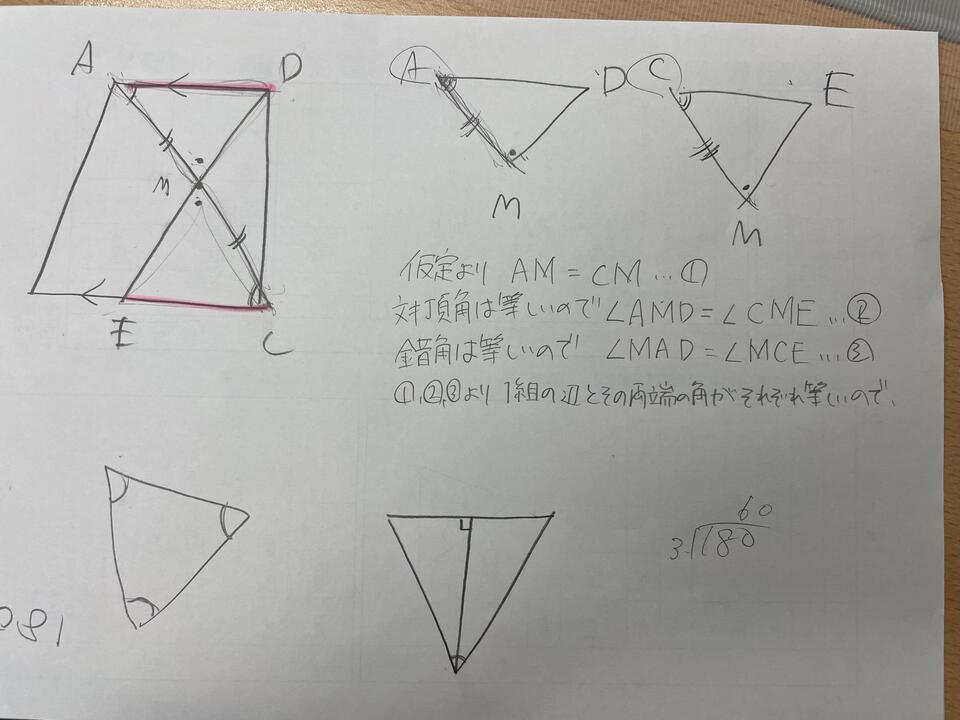 A D
M
E C
A D
M
C E
M
仮定より AM = CM …①
対頂角は等しいので∠AMD=∠CME…②
錯角は等しいので ∠MAD=∠MCE…③
①,②,③より 1組の辺とその両端の角がそれぞれ等しいので、
60
3)180
180